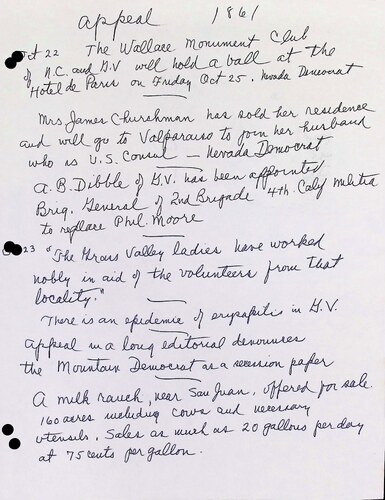 Appeal 1861
Oct 22 The Wallace Monument Club
of N.C. and G.V will hold a ball at the
Hotel de Paris on Friday Oct 25. Nevada Democrat
Mrs James Churchman has sold her residence
and will go to Valparaiso to join her husband
who is U.S. Consul — Nevada Democrat
A.B. Dibble of G.V. has been appointed
Brig. General of 2nd Brigade 4th Calif Militia
to replace Phil. Moore
Oct 23 "The Grass Valley ladies have worked
nobly in aid of the volunteers from that
locality."
There is an epidemic of erysipelis in G.V.
Appeal in a long editorial denounces
the Mountain Democrat as a secession paper
A milk ranch, near San Juan, offered for sale.
160 acres including cows and necessary
utensils. Sales as much as 20 gallons per day
at 75 cents per gallon.